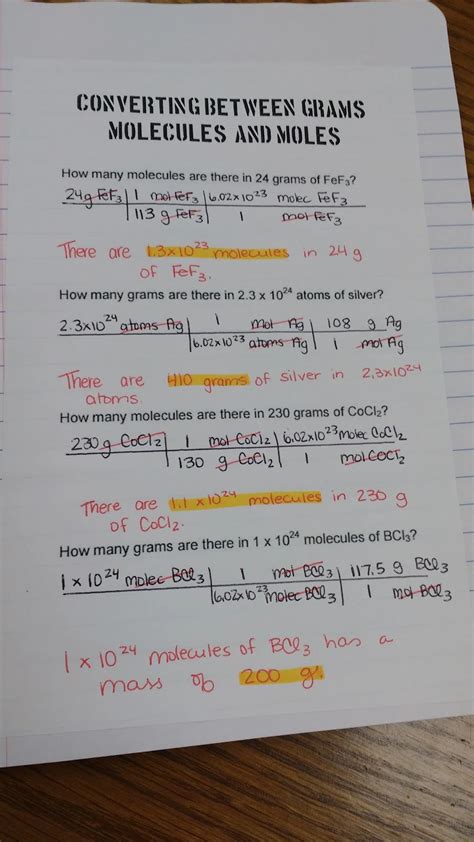 CONVERTING BETWEEN GRAMS
MOLECULES AND MOLES
How many molecules are there in 24 grams of FeF₃?
24g FeF₃ | 1 mol FeF₃ | 6.02x10²³ molec FeF₃
113 g FeF₃ | 1 mol FeF₃
There are 1.3x10²³ molecules in 24 g
of FeF₃.
How many grams are there in 2.3 x 10²⁴ atoms of silver?
2.3x10²⁴ atoms Ag | 1 mol Ag | 108 g Ag
6.02x10²³ atoms Ag | 1 mol Ag
There are 410 grams of silver in 2.3x10²⁴
atoms.
How many molecules are there in 230 grams of CoCl₂?
230 g CoCl₂ | 1 mol CoCl₂ | 6.02x10²³ molec CoCl₂
130 g CoCl₂ | 1 mol COCl₂
There are 1.1 x 10²⁴ molecules in 230 g
of CoCl₂.
How many grams are there in 1 x 10²⁴ molecules of BCl₃?
1 x 10²⁴ molec BCl₃ | 1 mol BCl₃ | 117.5 g BCl₃
6.02x10²³ molec BCl₃ | 1 mol BCl₃
1 x 10²⁴ molecules of BCl₃ has a
mass of 200 g.